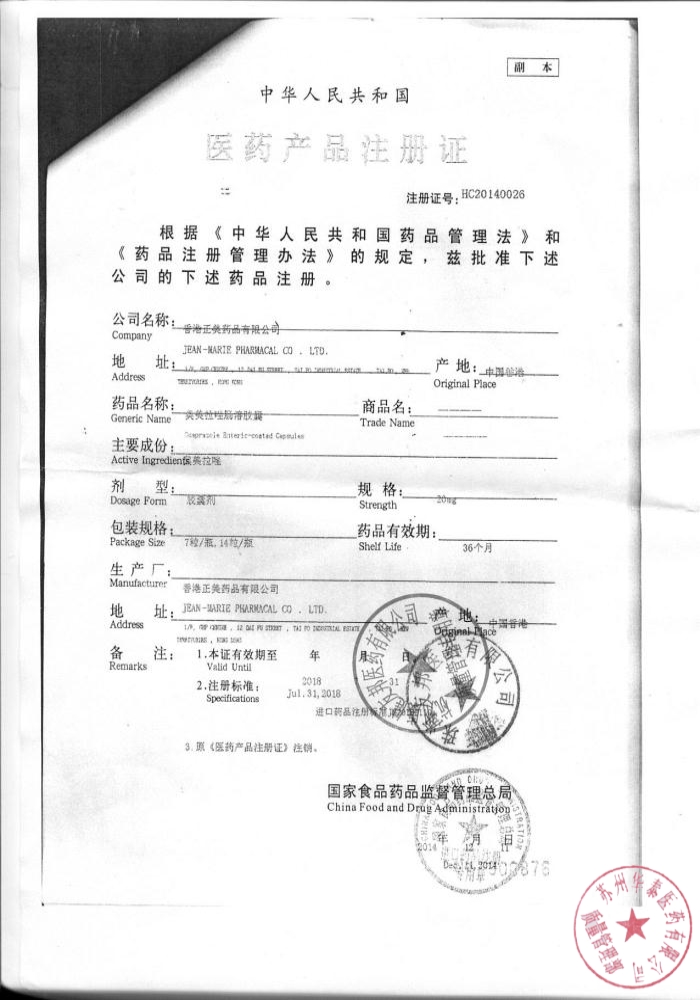 副 本
中华人民共和国
医药产品注册证
注册证号:HC20140026
根据《中华人民共和国药品管理法》和
《药品注册管理办法》的规定，兹批准下述
公司的下述药品注册。
公司名称: 香港正美药品有限公司
Company
JEAN-MARIE PHARMACAL CO . LTD.
地 址: 产 地: 中国香港
Address Original Place
TERRITORIES , HONG KONG
药品名称: 奥美拉唑肠溶胶囊 商品名: ————
Generic Name Trade Name
Omeprazole Enteric-coated Capsules ————
主要成份:
Active Ingredients 奥美拉唑
剂 型: 规 格:
Dosage Form 胶囊剂 Strength 20mg
包装规格: 药品有效期:
Package Size 7粒/瓶,14粒/瓶 Shelf Life 36个月
生产厂:
Manufacturer 香港正美药品有限公司
地 址: JEAN-MARIE PHARMACAL CO . LTD. 产 地: 中国香港
Address Original Place
TERRITORIES , HONG KONG
备 注: 1.本证有效期至 年 月 日
Remarks Valid Until
2018 31
2.注册标准: Jul.31,2018
Specifications
进口药品注册标准
3.原《医药产品注册证》注销。
国家食品药品监督管理总局
China Food and Drug Administration
年 月 日
2014 12 11
Dec.11,2014
苏州华泰医药有限公司
质量管理部